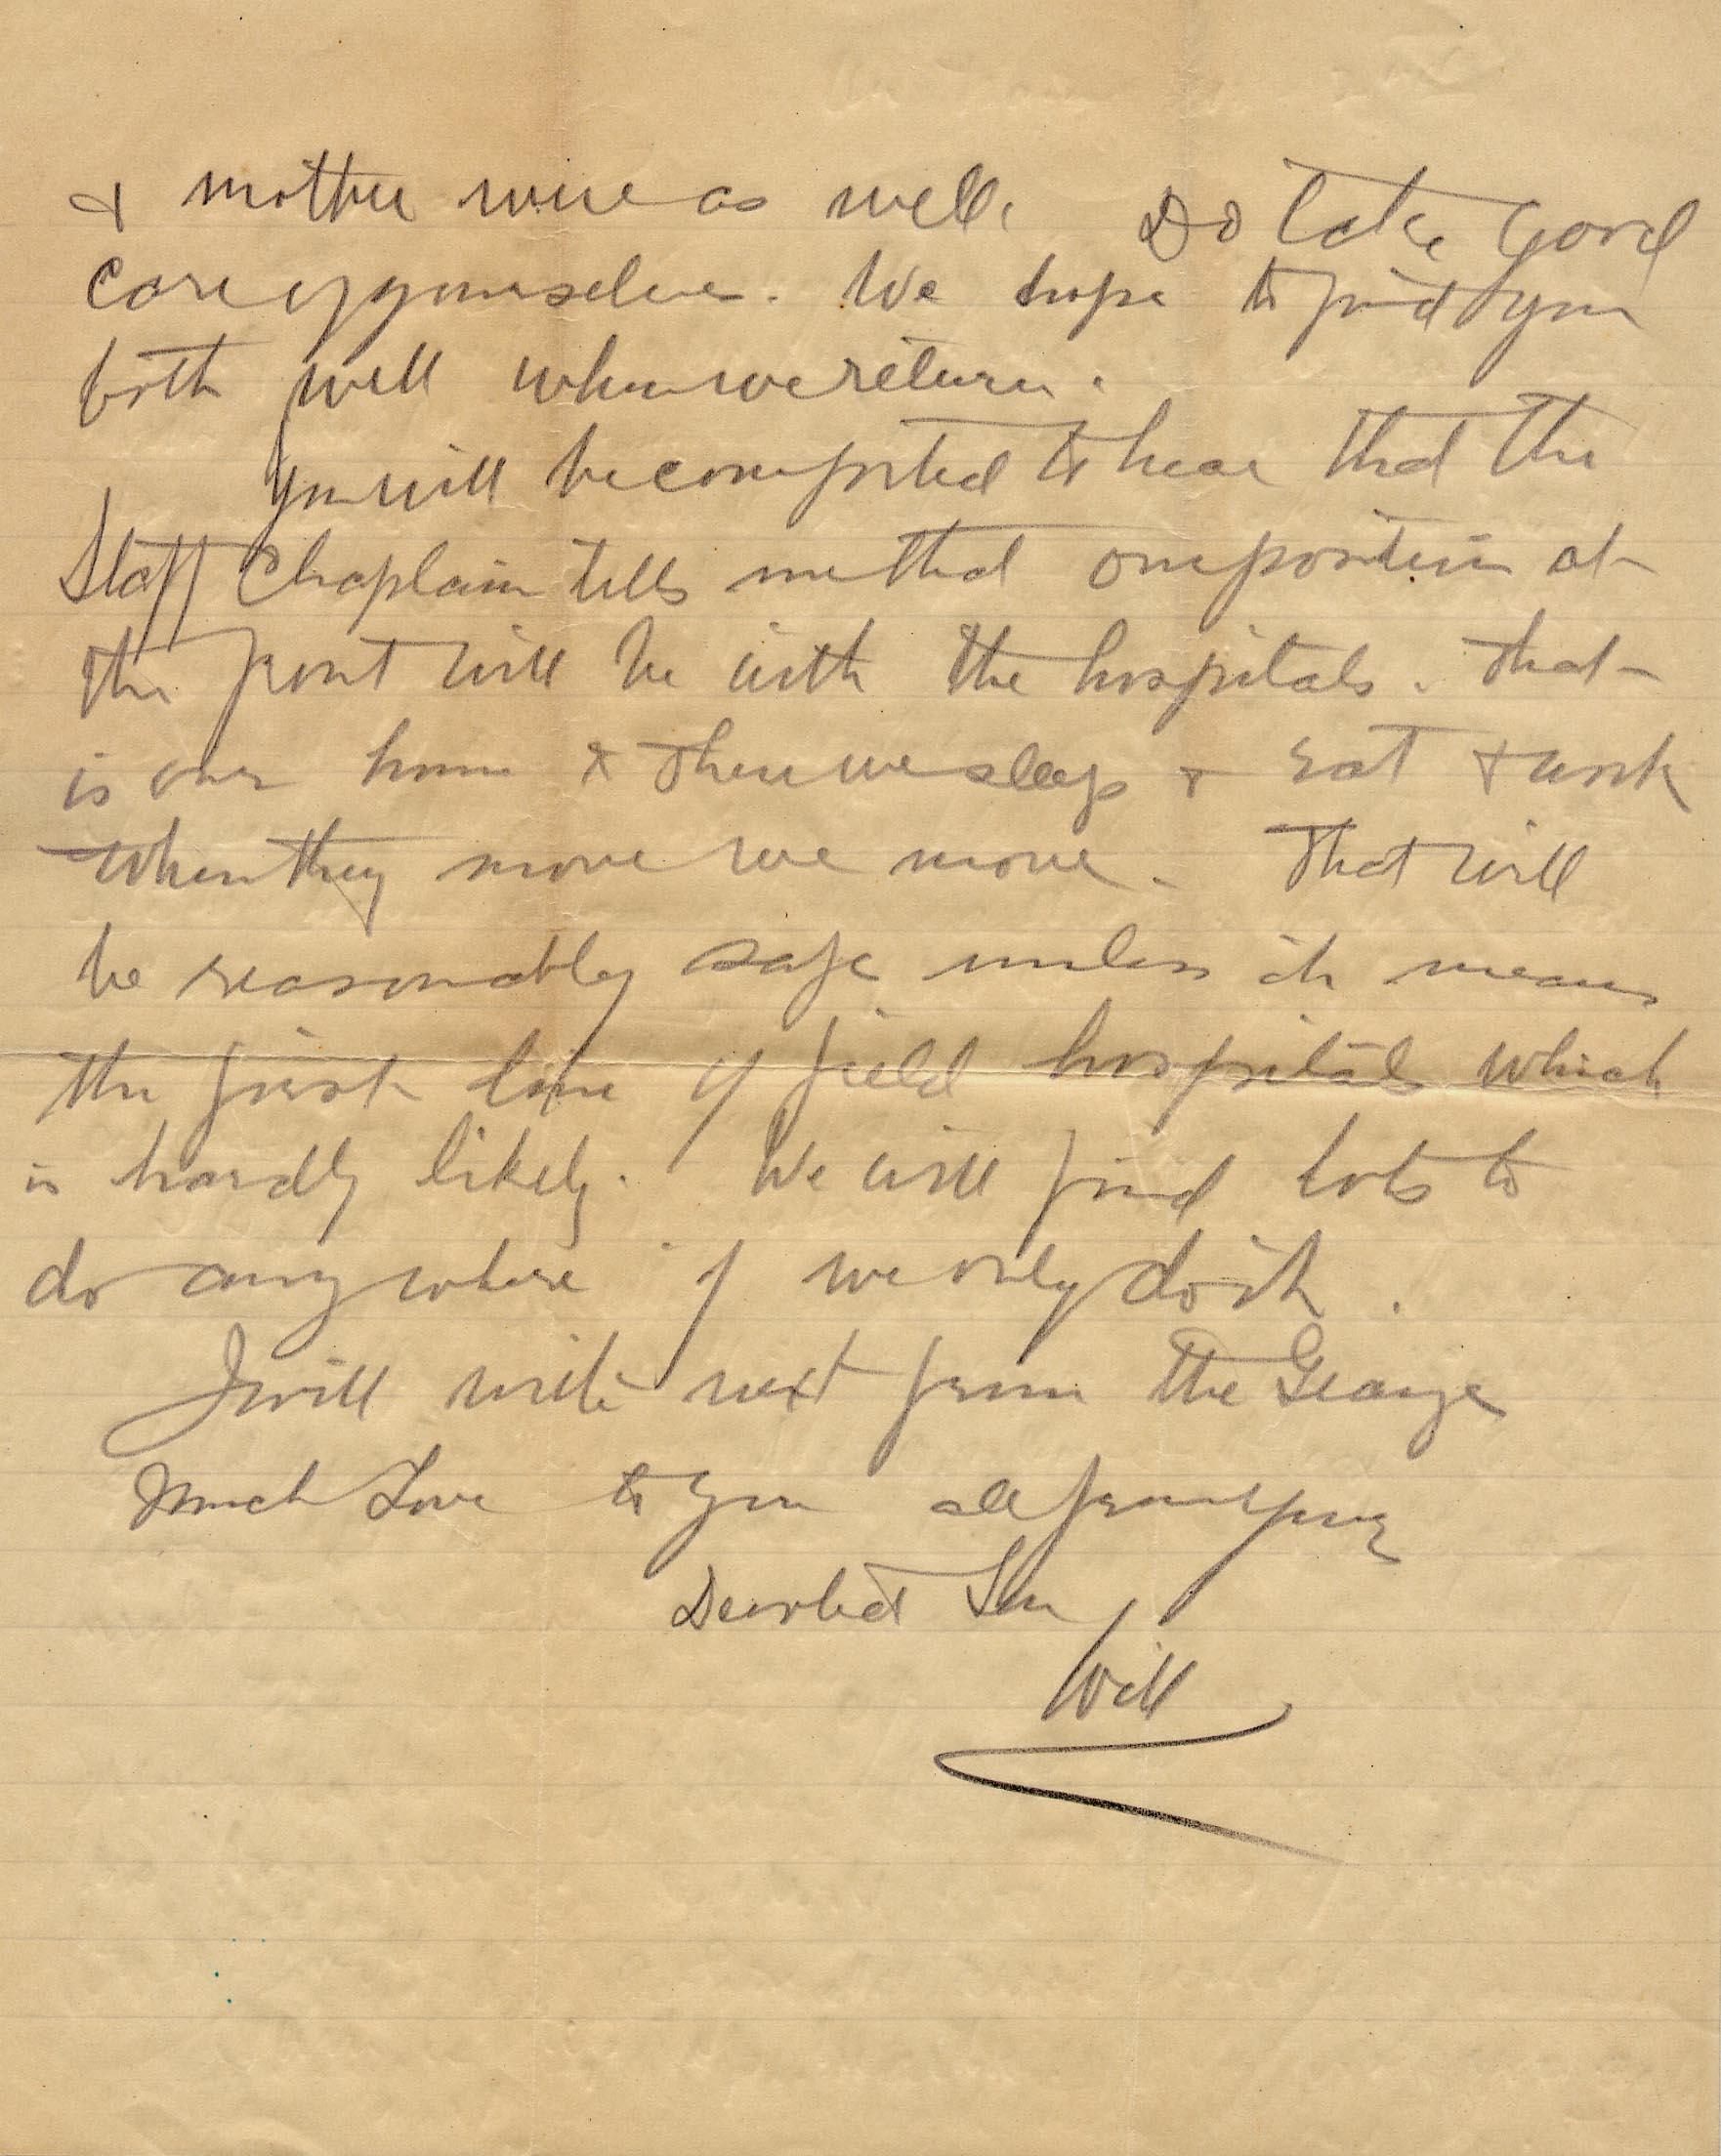 & mother were as well. Do take good
care of yourselves. We hope to find you
both well when we return.
You will be comforted to hear that the
Staff Chaplain tells me that our position at
the front will be with the hospitals. That
is our home & there we sleep & eat & work
When they move we move. That will
be reasonably safe unless it means
the first line of field hospitals which
is hardly likely. We will find lots to
do anywhere if we only do it.
I will write next from the George
Much Love to you all from your
Devoted Son
Will